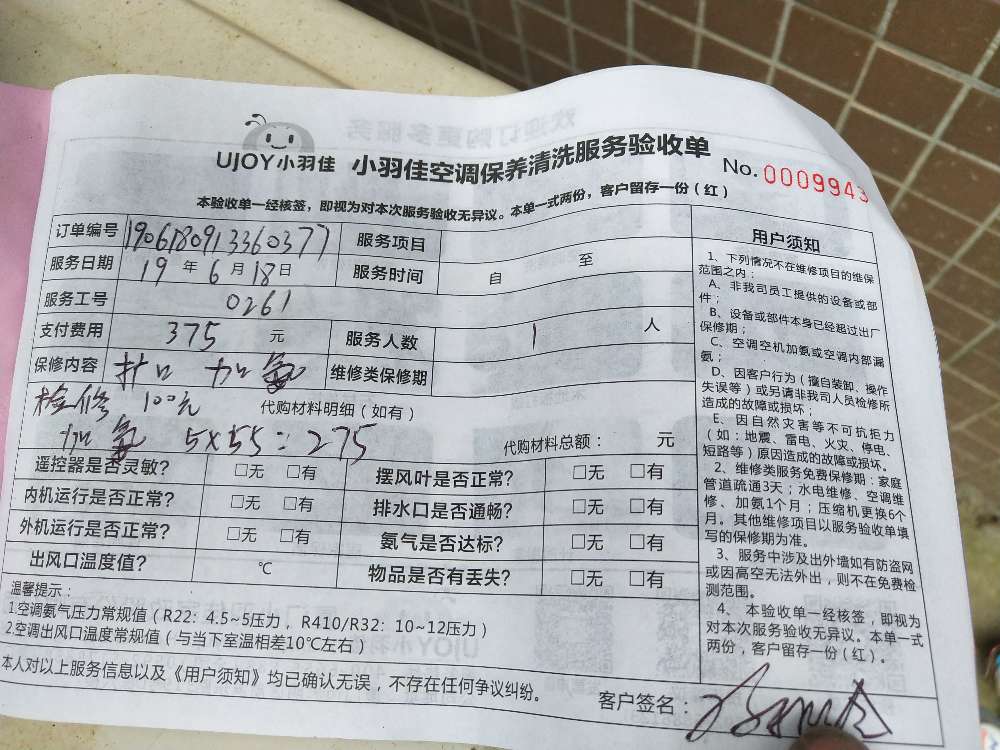 UJOY小羽佳 小羽佳空调保养清洗服务验收单
No. 0009943
本验收单一经核签，即视为对本次服务验收无异议。本单一式两份，客户留存一份（红）
订单编号 1906180913360377 服务项目
服务日期 19 年 6 月 18 日 服务时间 自 至
服务工号 0261
支付费用 375 元 服务人数 1 人
保修内容 加氨 维修类保修期
检修 100元 代购材料明细（如有）
加氨 5X55=275 代购材料总额： 元
遥控器是否灵敏? □无 □有 摆风叶是否正常? □无 □有
内机运行是否正常? □无 □有 排水口是否通畅? □无 □有
外机运行是否正常? □无 □有 氨气是否达标? □无 □有
出风口温度值? ℃ 物品是否有丢失? □无 □有
温馨提示：
1.空调氨气压力常规值（R22：4.5~5压力， R410/R32：10~12压力）
2.空调出风口温度常规值（与当下室温相差10℃左右）
本人对以上服务信息以及《用户须知》均已确认无误，不存在任何争议纠纷。
客户签名：
用户须知
1、下列情况不在维修项目的维保
范围之内：
A、非我司员工提供的设备或部
件；
B、设备或部件本身已经超过出厂
保修期；
C、空调空机加氨或空调内部漏
氨；
D、因客户行为（擅自装卸、操作
失误等）或另请非我司人员检修所
造成的故障或损坏；
E、因自然灾害等不可抗拒力
（如：地震、雷电、火灾、停电、
短路等）原因造成的故障或损坏。
2、维修类服务免费保修期：家庭
管道疏通3天；水电维修、空调维
修、加氨1个月；压缩机更换6个
月。其他维修项目以服务验收单填
写的保修期为准。
3、服务中涉及出外墙如有防盗网
或因高空无法外出，则不在免费检
测范围。
4、本验收单一经核签，即视为
对本次服务验收无异议。本单一式
两份，客户留存一份（红）。